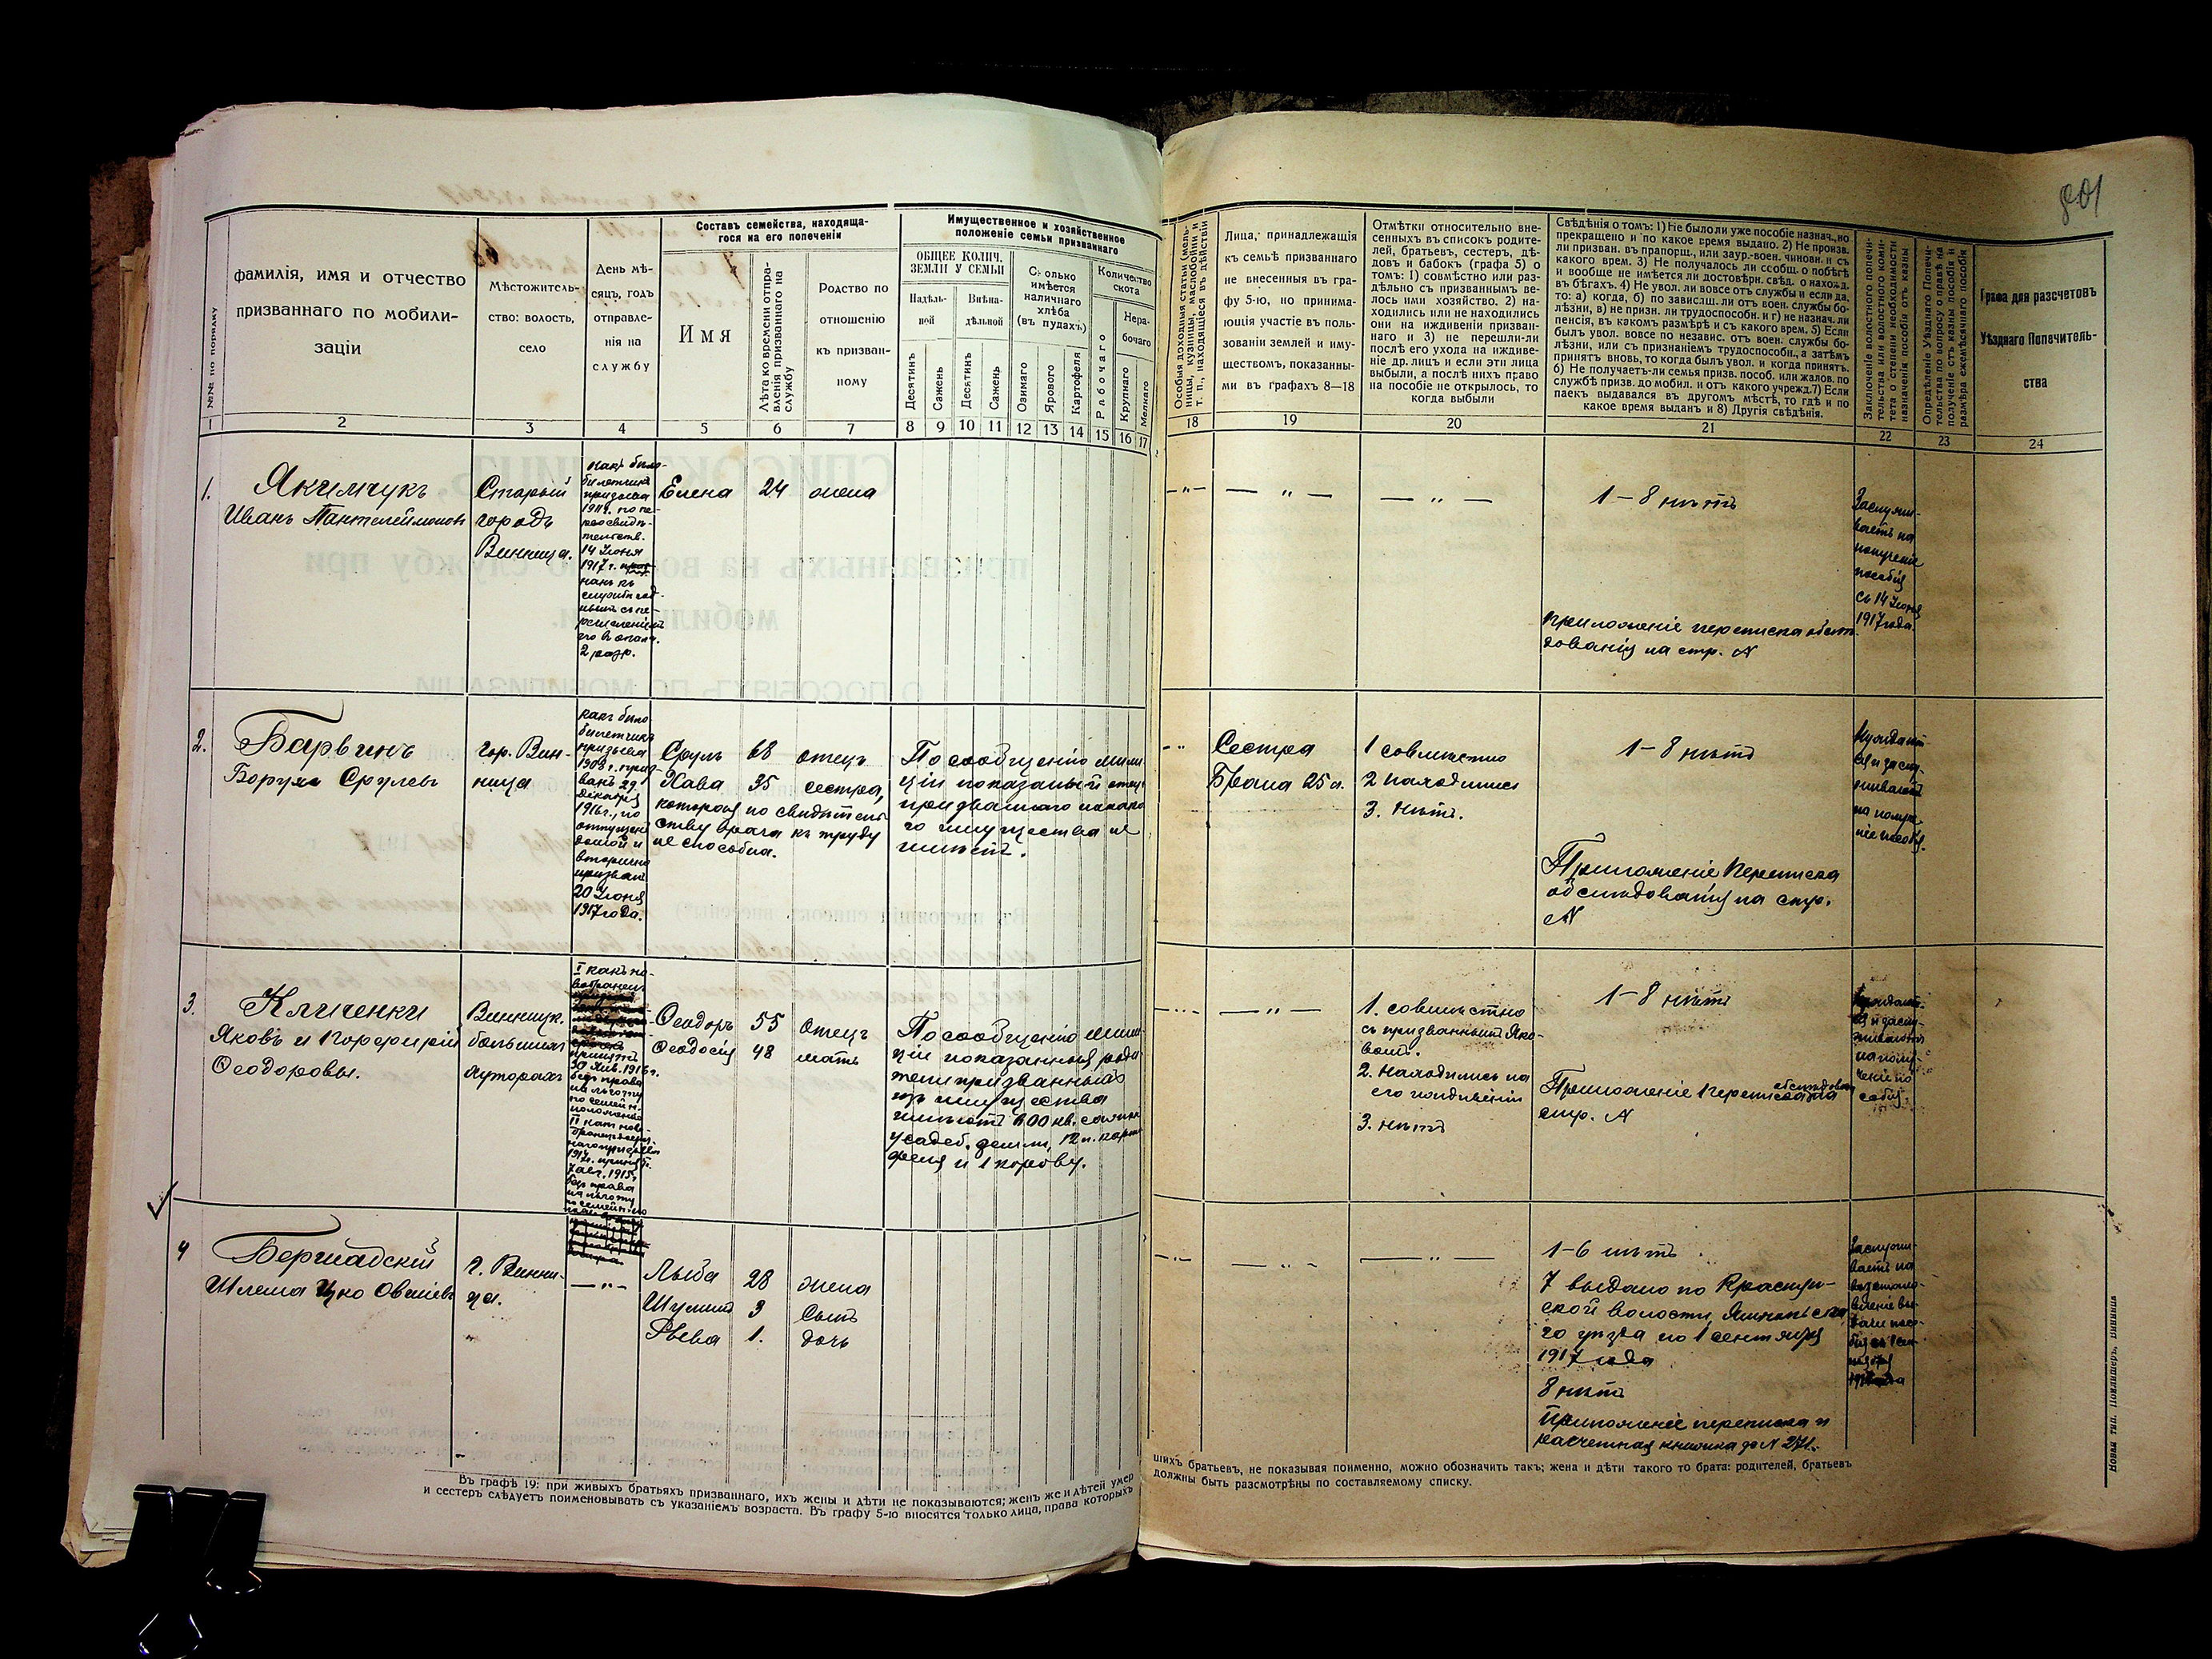 801
№№ по порядку
фамилія, имя и отчество
призваннаго по мобили-
заціи
Мѣстожитель-
ство: волость,
село
День мѣ-
сяцъ, годъ
отправле-
нія на
службу
Составъ семейства, находяща-
гося на его попеченіи
Имя
Лѣта ко времени отпра-
вленія призваннаго на
службу
Родство по
отношенію
къ призван-
ному
Имущественное и хозяйственное
положеніе семьи призваннаго
ОБЩЕЕ КОЛИЧ.
ЗЕМЛИ У СЕМЬИ
Надѣль-
ной
Внѣна-
дѣльной
Сколько
имѣется
наличнаго
хлѣба
(въ пудахъ)
Количество
скота
Нера-
бочаго
Десятинъ
Сажень
Десятинъ
Сажень
Озимаго
Ярового
Картофеля
Рабочаго
Крупнаго
Мелкаго
Особыя доходныя статьи (мель-
ницы, кузницы, маслобойни и
т. п., находящіеся въ дѣйствіи
Лица, принадлежащія
къ семьѣ призваннаго
не внесенныя въ гра-
фу 5-ю, но принима-
ющія участіе въ поль-
зованіи землей и иму-
ществомъ, показанны-
ми въ графахъ 8—18
Отмѣтки относительно вне-
сенныхъ въ списокъ родите-
лей, братьевъ, сестеръ, дѣ-
довъ и бабокъ (графа 5) о
томъ: 1) совмѣстно или раз-
дѣльно съ призваннымъ ве-
лось ими хозяйство. 2) на-
ходились или не находились
они на иждивеніи призван-
наго и 3) не перешли-ли
послѣ его ухода на иждиве-
ніе др. лицъ и если эти лица
выбыли, а послѣ нихъ право
на пособіе не открылось, то
когда выбыли
Свѣдѣнія о томъ: 1) Не было ли уже пособіе назнач., но
прекращено и по какое время выдано. 2) Не произв.
ли призван. въ прапорщ., или заур.-воен. чиновн. и съ
какого врем. 3) Не получалось ли сообщ. о побѣгѣ
и вообще не имѣется ли достовѣрн. свѣд. о нахожд.
въ бѣгахъ. 4) Не увол. ли вовсе отъ службы и если да,
то: а) когда, б) по зависящ. ли отъ воен. службы бо-
лѣзни, в) не призн. ли трудоспособн. и г) не назнач. ли
пенсія, въ какомъ размѣрѣ и съ какого врем. 5) Если
былъ увол. вовсе по независ. отъ воен. службы бо-
лѣзни, или съ признаніемъ трудоспособн., а затѣмъ
принятъ вновь, то когда былъ увол. и когда принятъ.
6) Не получаетъ-ли семья призв. пособ. или жалов. по
службѣ призв. до мобил. и отъ какого учрежд. 7) Если
паекъ выдавался въ другомъ мѣстѣ, то гдѣ и по
какое время выданъ и 8) Другія свѣдѣнія.
Заключеніе волостного попечи-
тельства или волостного коми-
тета о степени необходимости
назначенія пособія отъ казны
Опредѣленіе Уѣзднаго Попечи-
тельства по вопросу о правѣ на
полученіе отъ казны пособія и
размѣра ежемѣсячнаго пособія
Графа для разсчетовъ
Уѣзднаго Попечитель-
ства
1 2 3 4 5 6 7 8 9 10 11 12 13 14 15 16 17
18 19 20 21 22 23 24
1.
Якимчукъ
Иванъ Пантелеймонов
Старый
городъ
Винница.
призыва
14 Іюня
1917 г.
2 разр.
Елена 24 жена
— „ — — „ — — „ —
1–8 нѣтъ
Приложеніе переписка обслѣ-
дованія на стр. №
Заслужи-
ваетъ на
полученіе
пособія
съ 14 Іюня
1917 года.
2.
Барвинъ
Борухъ Срулевъ
гор. Вин-
ница
какъ било
билетчикъ
призыва
декабря
1916 г., но
отпущенъ
домой и
вторично
призванъ
20 Іюня
1917 года.
Сруль 68 отецъ
Хава 35 сестра,
которая по свидѣтель
ству врача къ труду
не способна.
По сообщенію мили
ціи показаный отецъ
призваннаго никако
го имущества не
имѣетъ.
Сестра
Брана 25 л.
1 совмѣстно
2 Находились
3. Нѣтъ.
1–8 нѣтъ
Приложеніе Переписка
обслѣдованія на стр.
№
3.
Кличенки
Яковъ и Порфирій
Ѳеодоровы.
Винницк.
большихъ
хуторахъ
I какъ но-
вобранецъ
принятъ
30 Янв. 1916 г.
безъ права
на льготу
по семейн.
7 авг. 1915 г.
безъ права
на льготу
Ѳеодоръ 55 отецъ
Ѳеодосія 48 мать
По сообщенію мили-
ціи показанныя роди
тели призванныхъ
изъ имущества
имѣютъ 600 кв. сажень
усадеб. земли, 12 п. карто
феля и 1 корову.
— „ —
1. совмѣстно
съ призваннымъ Яко-
вомъ.
2. Находились на
его иждивеніи
3. нѣтъ
1–8 нѣтъ
Приложеніе Переписка обслѣдованія
стр. №
4
Бершадскій
Шлема Ицко Овшіевъ
г. Винни-
ца.
— „ —
Лыба 28 жена
Шулимъ 3 сынъ
Рвева 1. дочь
— „ —
1–6 нѣтъ.
7 выдано по Красня-
ской волости, Ямпольска
го уѣзда по 1 сентября
1917 года
8 нѣтъ
Приложеніе переписка и
расчетная книжка за № 271.
Въ графѣ 19: при живыхъ братьяхъ призваннаго, ихъ жены и дѣти не показываются; женъ же и дѣтей умер
шихъ братьевъ, не показывая поименно, можно обозначить такъ; жена и дѣти такого то брата: родителей, братьевъ
и сестеръ слѣдуетъ поименовывать съ указаніемъ возраста. Въ графу 5-ю вносятся только лица, права которыхъ
должны быть разсмотрѣны по составляемому списку.